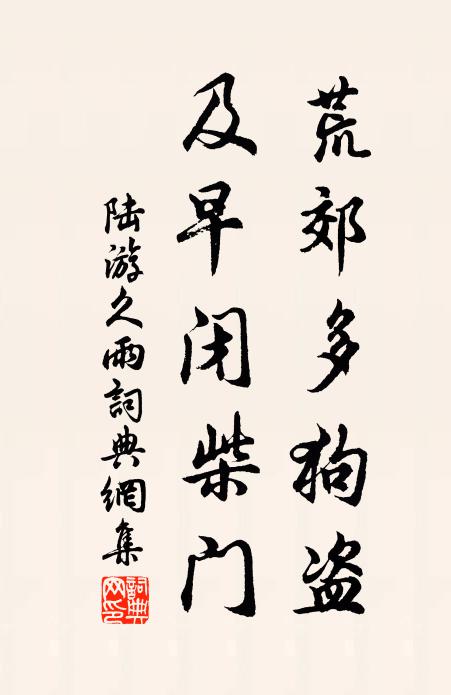 荒郊多狗盗
及早闭柴门
陆游久雨詞典網集
詞典网印